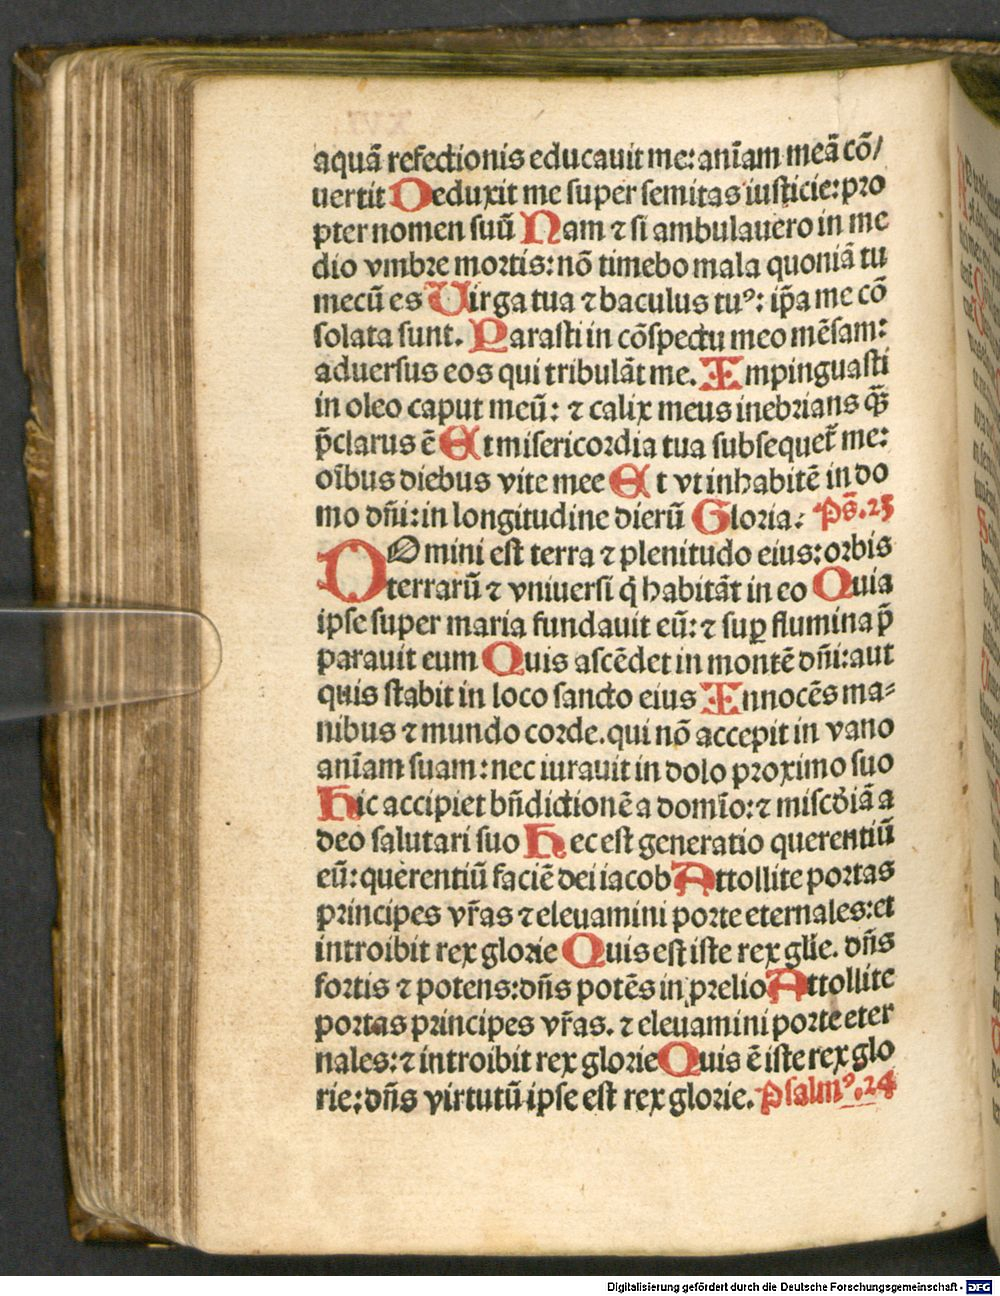 aquā refectionis educauit me: anīam meā cō/
uertit Deduxit me super semitas iusticie: pro
pter nomen suū Nam ⁊ si ambulauero in me
dio vmbre mortis: nō timebo mala quoniā tu
mecū es Uirga tua ⁊ baculus tuꝰ: ip̄a me cō
solata sunt. Parasti in cōspectu meo mēsam:
aduersus eos qui tribulāt me. Impinguasti
in oleo caput meū: ⁊ calix meus inebrians q̄ꝫ
p̄clarus ē Et misericordia tua subsequet̄ me:
oībus diebus vite mee Et vt inhabitē in do
mo dn̄i: in longitudine dierū Gloria: Ps̄. 23
DOmini est terra ⁊ plenitudo eius: orbis
terrarū ⁊ vniuersi q̇ habitāt in eo Quia
ipse super maria fundauit eū: ⁊ suꝑ flumina p̄
parauit eum Quis ascēdet in montē dn̄i: aut
quis stabit in loco sancto eius Innocēs ma⸗
nibus ⁊ mundo corde. qui nō accepit in vano
anīam suam: nec iurauit in dolo proximo suo
Hic accipiet bn̄dictionē a domīo: ⁊ miscd̄iā a
deo salutari suo Hec est generatio querentiū
eū: querentiū faciē dei iacob Attollite portas
principes vr̄as ⁊ eleuamini porte eternales: et
introibit rex glorie Quis est iste rex glīe. dn̄s
fortis ⁊ potens: dn̄s potēs in prelio Attollite
portas principes vr̄as. ⁊ eleuamini porte eter
nales: ⁊ introibit rex glorie Quis ē iste rex glo
rie: dn̄s virtutū ipse est rex glorie. Psalmꝰ. 24
Digitalisierung gefördert durch die Deutsche Forschungsgemeinschaft - DFG